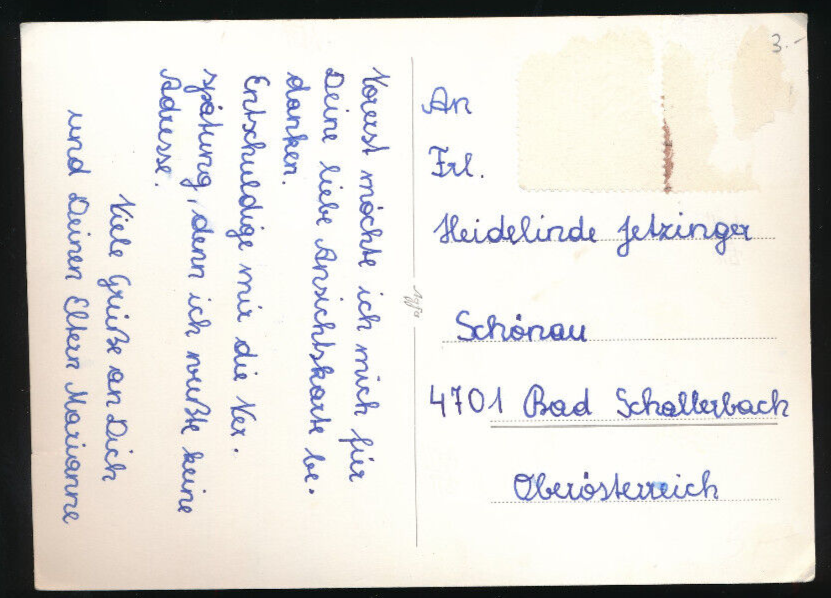 Vorerst möchte ich mich für
Deine liebe Ansichtskarte be-
danken.
Entschuldige mir die Ver-
spätung, denn ich wußte keine
Adresse.
Viele Grüße an Dich
und Deinen Eltern Marianne
3.-
An
Frl.
Heidelinde Jetzinger
Schönau
4701 Bad Schallerbach
Oberösterreich